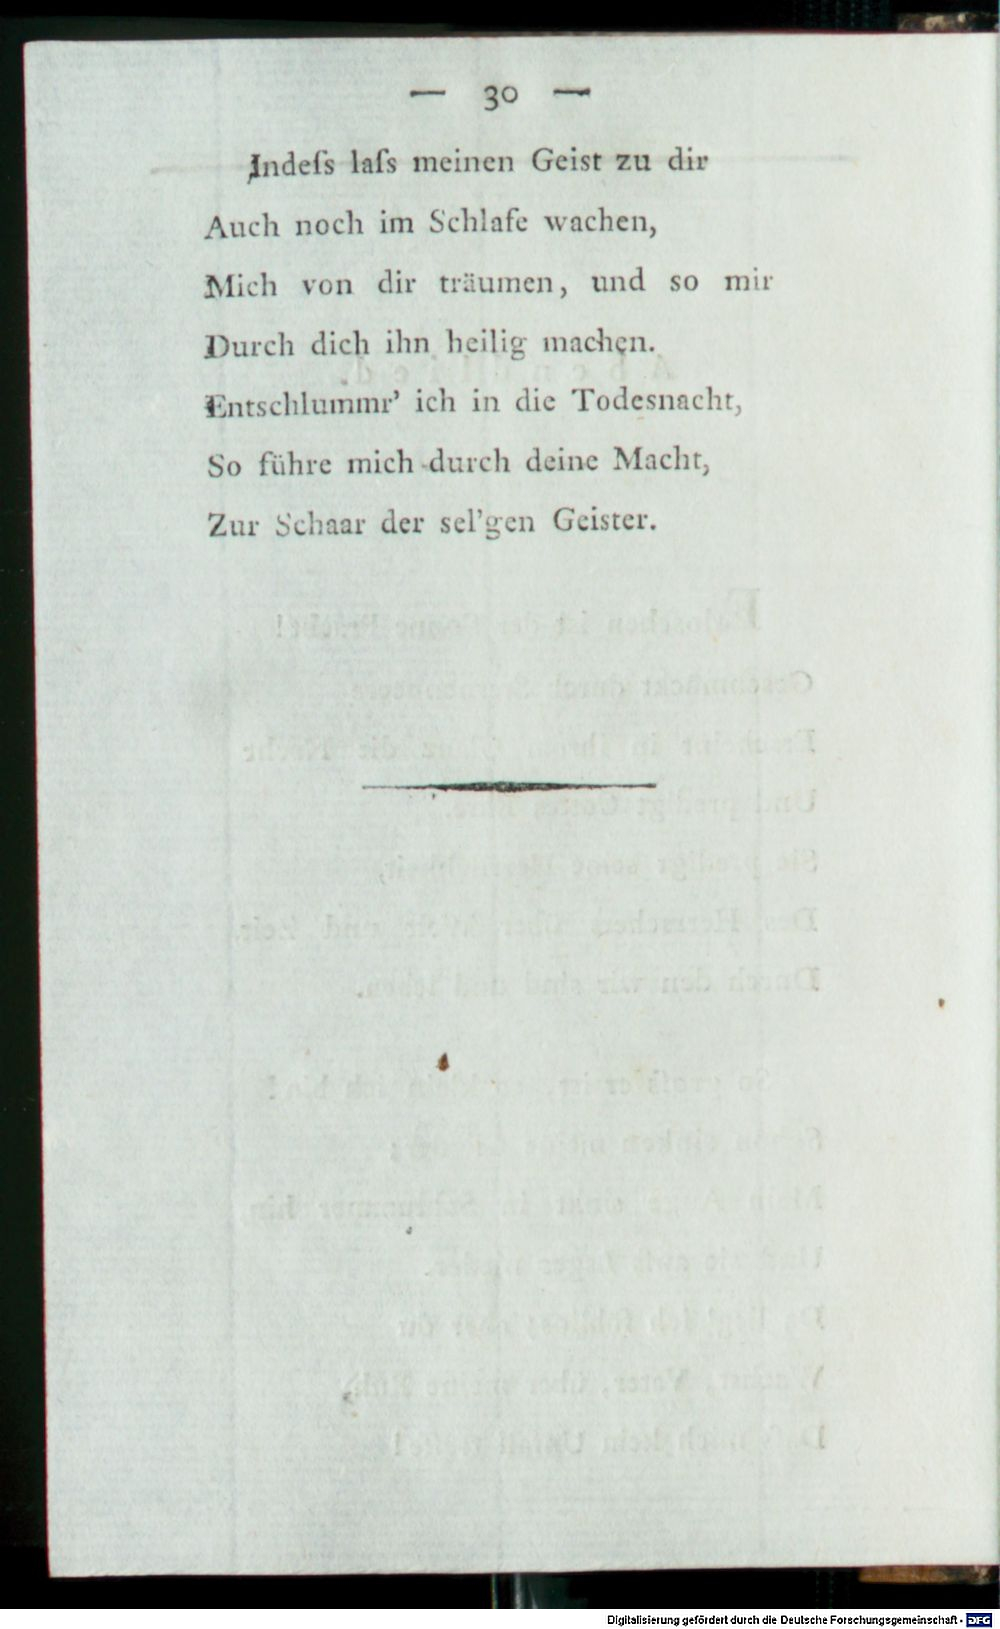 — 30 —
Indeſs laſs meinen Geist zu dir
Auch noch im Schlafe wachen,
Mich von dir träumen, und so mir
Durch dich ihn heilig machen.
Entschlummr' ich in die Todesnacht,
So führe mich durch deine Macht,
Zur Schaar der sel'gen Geister.
Digitalisierung gefördert durch die Deutsche Forschungsgemeinschaft - DFG